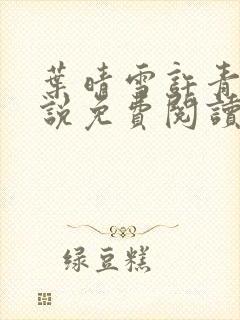 葉晴雪許青
說免費閱讀
绿豆糕